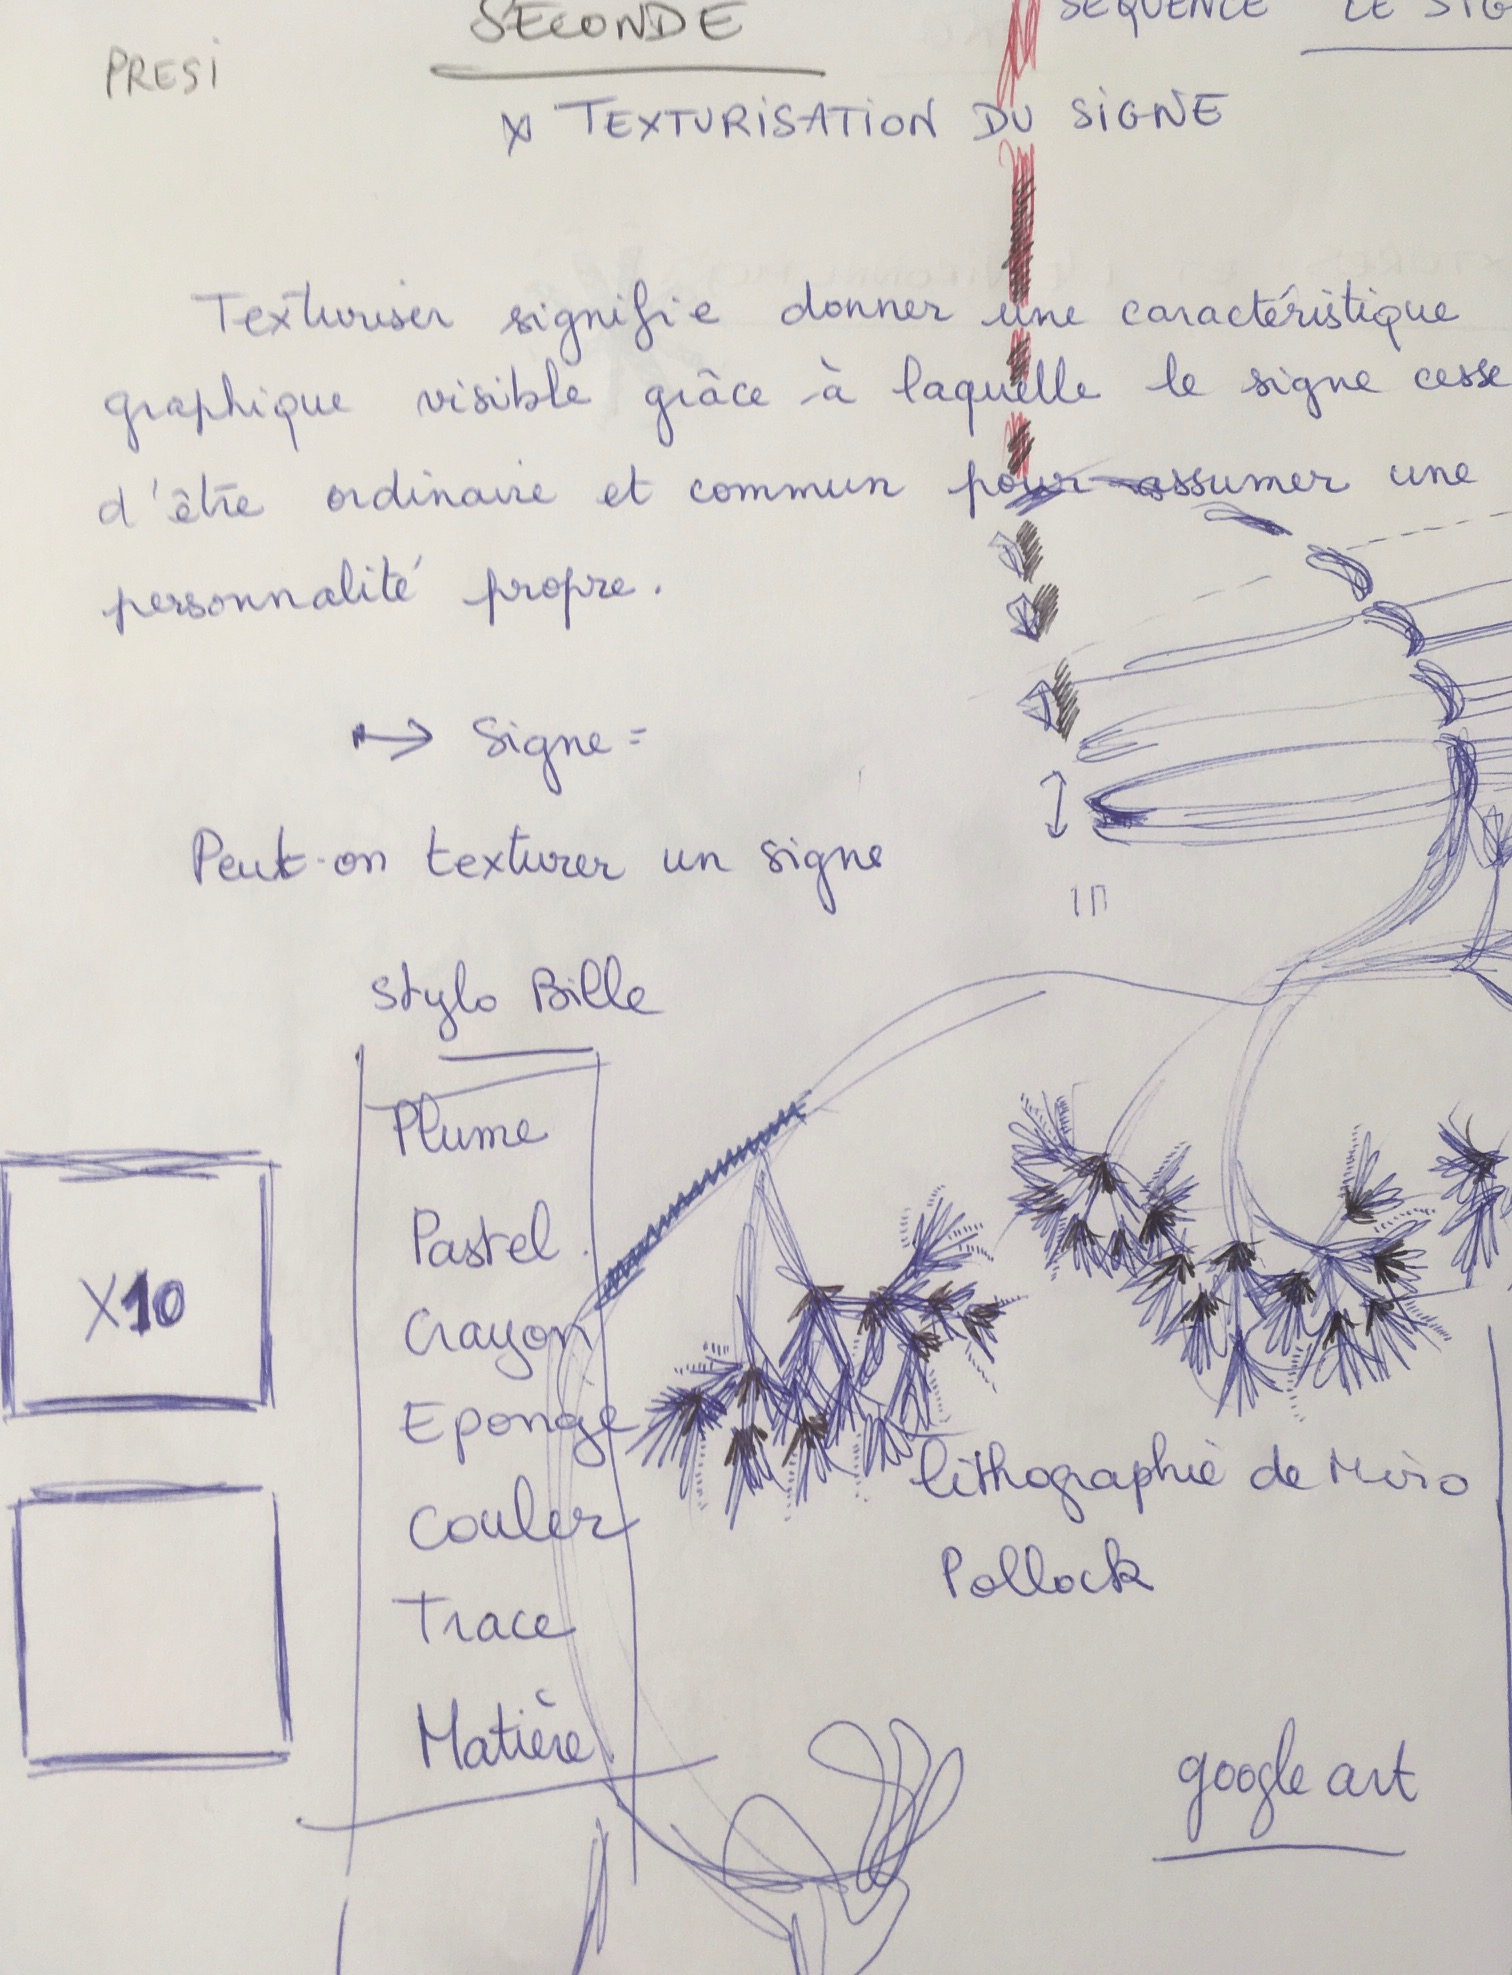 SECONDE
SEQUENCE LE SIG
PRESI
X TEXTURISATION DU SIGNE
Texturiser signifie donner une caractéristique
graphique visible grâce à laquelle le signe cesse
d'être ordinaire et commun pour assumer une
personnalité propre.
→ Signe =
Peut-on texturer un signe
Stylo Bille
Plume
Pastel
Crayon
Eponge
Couler
Trace
Matière
X10
lithographie de Miro
Pollock
google art